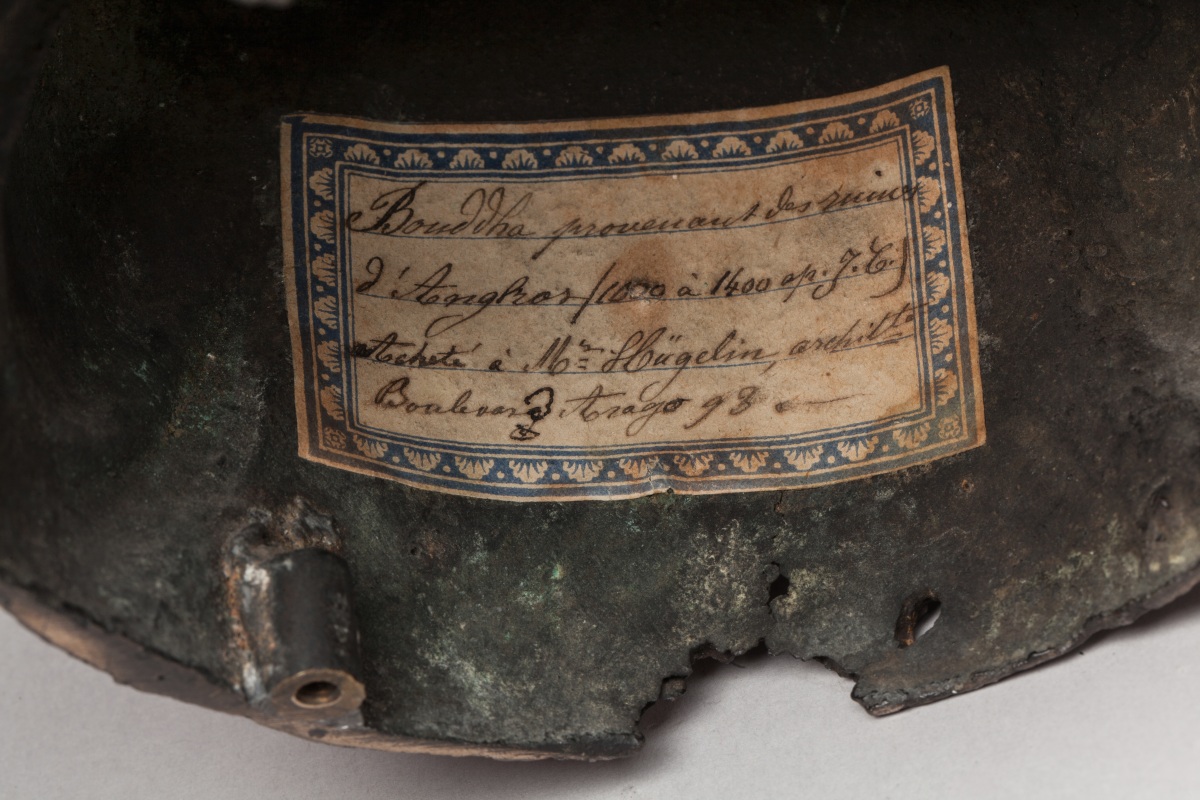 Bouddha provenant des ruines
d'Angkor (1000 à 1400 ap. J. C.)
Acheté à Mr Hügelin, archilte
Boulevard Arago 93